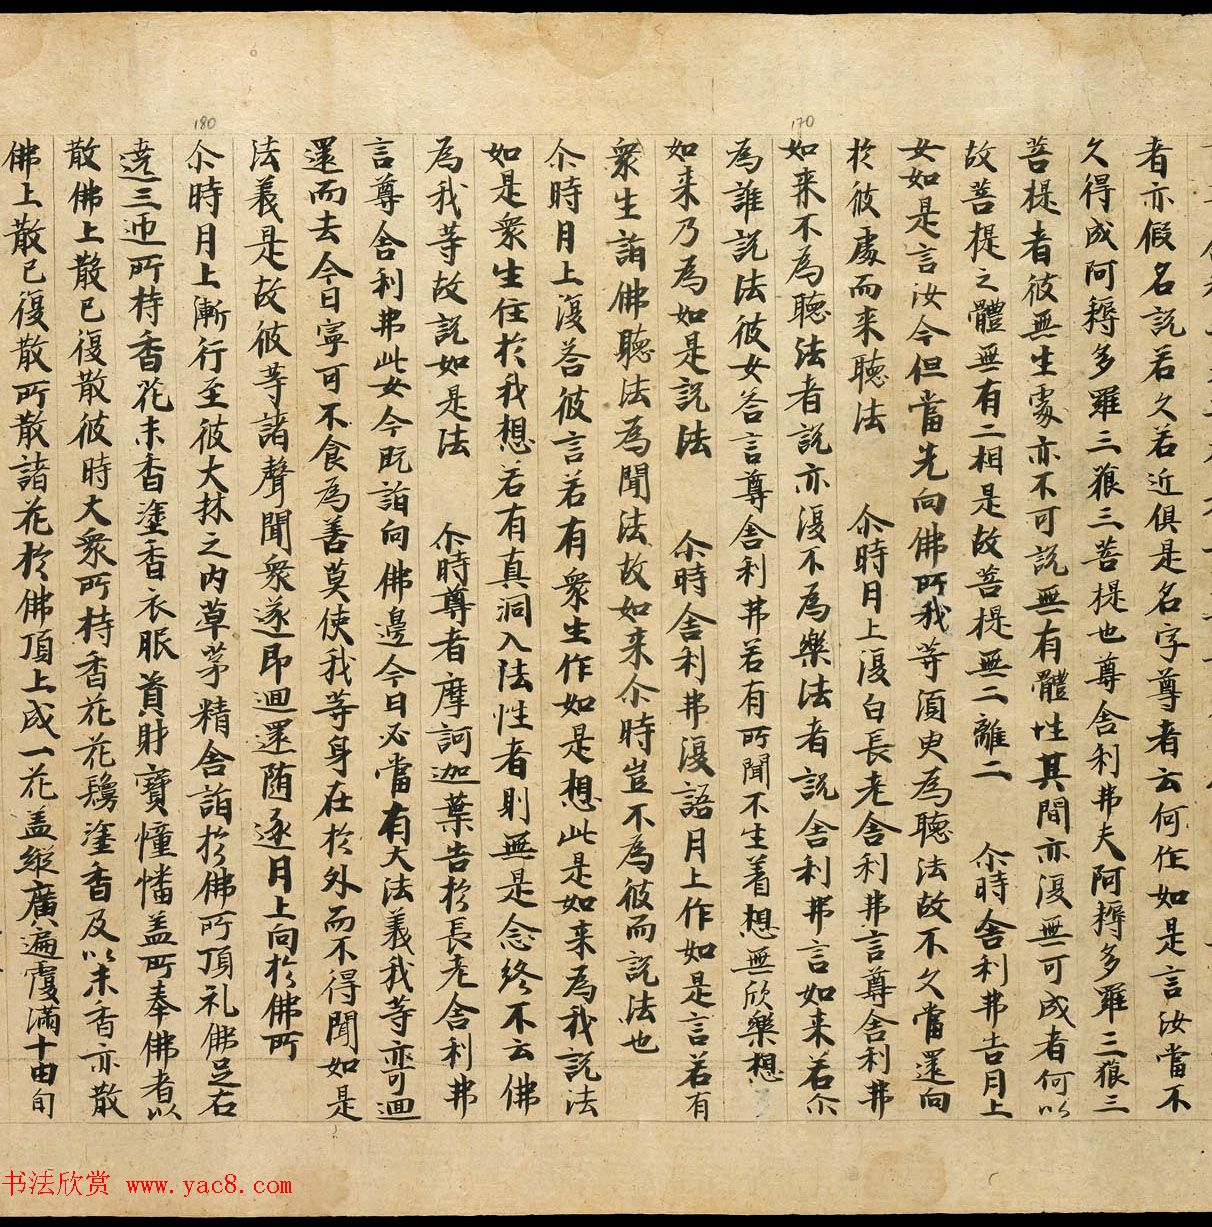 者亦假名說若久若近俱是名字尊者云何作如是言汝當不
久得成阿耨多羅三藐三菩提也尊舍利弗夫阿耨多羅三藐三
菩提者彼無生處亦不可說無有體性其間亦復無可成者何以
故菩提之體無有二相是故菩提無二離二 尒時舍利弗告月上
女如是言汝今但當先向佛所我等須臾為聽法故不久當還向
於彼處而来聽法 尒時月上復白長老舍利弗言尊舍利弗
如来不為聽法者說亦復不為樂法者說舍利弗言如来若尒
為誰說法彼女荅言尊舍利弗若有所聞不生着想無欣樂想
如来乃為如是說法 尒時舍利弗復語月上作如是言若有
衆生詣佛聽法為聞法故如来尒時豈不為彼而說法也
尒時月上復荅彼言若有衆生作如是想此是如来為我說法
如是衆生住於我想若有真洞入法性者則無是念終不云佛
為我等故說如是法 尒時尊者摩訶迦葉告於長老舍利弗
言尊舍利弗此女今既詣向佛邊今日必當有大法義我等亦可迴
還而去今日寧可不食為善莫使我等身在於外而不得聞如是
法義是故彼等諸聲聞衆遂即迴還随逐月上向於佛所
尒時月上漸行至彼大林之内草茅精舍詣於佛所頂礼佛足右
遶三迊所持香花末香塗香衣服資財寶幢幡盖所奉佛者以
散佛上散已復散彼時大衆所持香花花鬘塗香及以末香亦散
佛上散已復散所散諸花於佛頂上成一花盖縱廣遍覆滿十由旬
180
170
书法欣赏 www.yac8.com